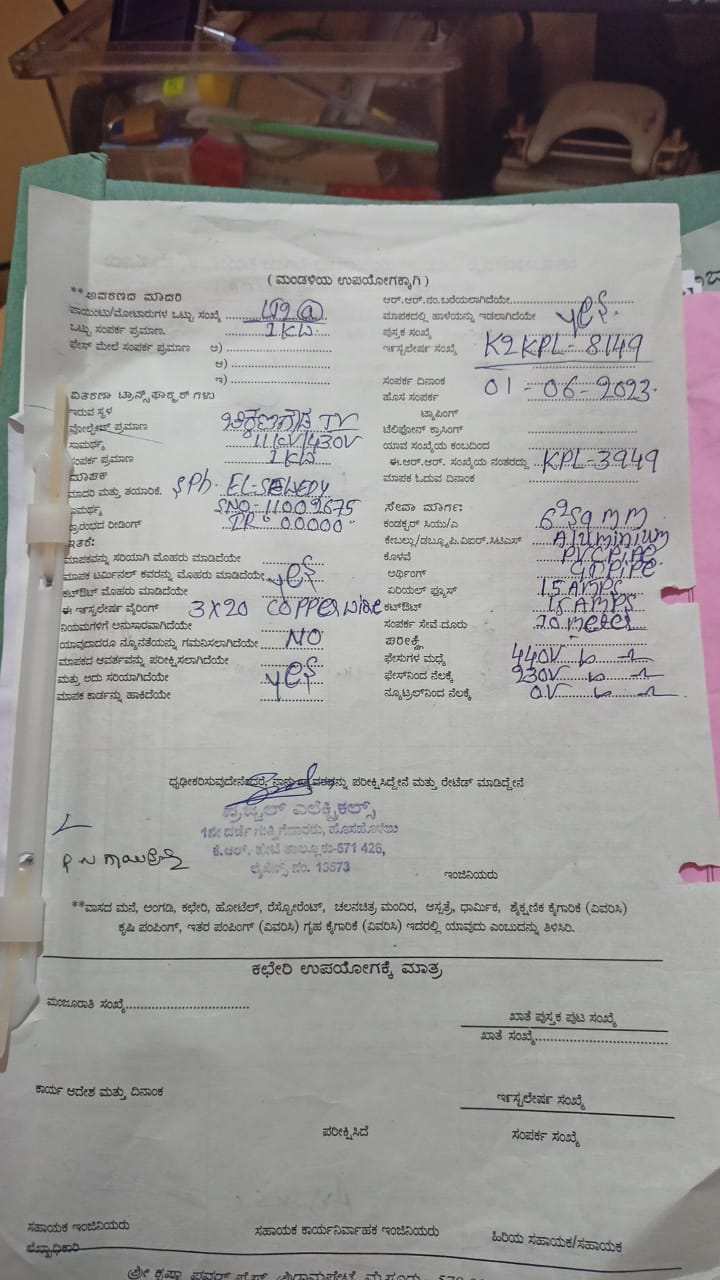 ( ಮಂಡಳಿಯ ಉಪಯೋಗಕ್ಕಾಗಿ )
**ಅವತರಣದ ಮಾದರಿ
ಪಾಯಿಂಟು/ಮೋಟಾರುಗಳ ಒಟ್ಟು ಸಂಖ್ಯೆ LT2 (a)
ಒಟ್ಟು ಸಂಪರ್ಕ ಪ್ರಮಾಣ. 1 KW
ಫೇಸ್ ಮೇಲೆ ಸಂಪರ್ಕ ಪ್ರಮಾಣ ಅ)
ಆ)
ಇ)
ವಿತರಣಾ ಟ್ರಾನ್ಸ್‌ಫಾರ್ಮರ್ ಗಳು
ಇರುವ ಸ್ಥಳ
ವೋಲ್ಟೇಜ್ ಪ್ರಮಾಣ TV
ಸಾಮರ್ಥ್ಯ 11KV/430V
ಸಂಪರ್ಕ ಪ್ರಮಾಣ 1 KW
ಮಾಪಕ
ಮಾದರಿ ಮತ್ತು ತಯಾರಿಕೆ. SPh. EL-
ಸಾಮರ್ಥ್ಯ SNO-11002675
ಪ್ರಾರಂಭದ ರೀಡಿಂಗ್ IR 00000
ಇತರೆ:
ಮಾಪಕವನ್ನು ಸರಿಯಾಗಿ ಮೊಹರು ಮಾಡಿದೆಯೇ
ಮಾಪಕ ಟರ್ಮಿನಲ್ ಕವರನ್ನು ಮೊಹರು ಮಾಡಿದೆಯೇ
ಕಟ್‌ಔಟ್ ಮೊಹರು ಮಾಡಿದೆಯೇ
ಈ ಇನ್‌ಸ್ಟಲೇಷನ್ ವೈರಿಂಗ್ 3X20 COPPER WIRE
ನಿಯಮಗಳಿಗೆ ಅನುಸಾರವಾಗಿದೆಯೇ
ಯಾವುದಾದರೂ ನ್ಯೂನತೆಯನ್ನು ಗಮನಿಸಲಾಗಿದೆಯೇ NO
ಮಾಪಕದ ಆವರ್ತವನ್ನು ಪರೀಕ್ಷಿಸಲಾಗಿದೆಯೇ
ಮತ್ತು ಅದು ಸರಿಯಾಗಿದೆಯೇ
ಮಾಪಕ ಕಾರ್ಡನ್ನು ಹಾಕಿದೆಯೇ
ಆರ್.ಆರ್.ನಂ.ಬರೆಯಲಾಗಿದೆಯೇ
ಮಾಪಕದಲ್ಲಿ ಹಾಳೆಯನ್ನು ಇಡಲಾಗಿದೆಯೇ
ಪುಸ್ತಕ ಸಂಖ್ಯೆ
ಇನ್‌ಸ್ಟಲೇಷನ್ ಸಂಖ್ಯೆ K2KPL-8149
ಸಂಪರ್ಕ ದಿನಾಂಕ 01-06-2023.
ಹೊಸ ಸಂಪರ್ಕ
ಟ್ಯಾಪಿಂಗ್
ಟೆಲಿಫೋನ್ ಕ್ರಾಸಿಂಗ್
ಯಾವ ಸಂಖ್ಯೆಯ ಕಂಬದಿಂದ
ಈ.ಆರ್.ಆರ್. ಸಂಖ್ಯೆಯ ನಂತರದ್ದು KPL-3949
ಮಾಪಕ ಓದುವ ದಿನಾಂಕ
ಸೇವಾ ಮಾರ್ಗ:
ಕಂಡಕ್ಟರ್ ಸಿಯು/ಎ 6²Sqmm
ಕೇಬಲ್ಲು/ಡಬ್ಲ್ಯೂ.ಪಿ.ವಿಐರ್.ಸಿಟಿಎಸ್ Aluminium
ಕೊಳವೆ PVC PIPE
ಅರ್ಥಿಂಗ್ GI PIPE
ಏರಿಯಲ್ ಫ್ಯೂಸ್ 15 AMPS
ಕಟ್‌ಔಟ್ 15 AMPS
ಸಂಪರ್ಕ ಸೇವೆ ದೂರು meter
ಪರೀಕ್ಷೆ
ಫೇಸುಗಳ ಮಧ್ಯೆ 440V
ಫೇಸ್‌ನಿಂದ ನೆಲಕ್ಕೆ 230V
ನ್ಯೂಟ್ರಲ್‌ನಿಂದ ನೆಲಕ್ಕೆ 0V
ಧೃಢೀಕರಿಸುವುದೇನೆಂದರೆ, ನಾನು ವರವನ್ನು ಪರೀಕ್ಷಿಸಿದ್ದೇನೆ ಮತ್ತು ರೇಟೆಡ್ ಮಾಡಿದ್ದೇನೆ
ಪ್ರಜ್ವಲ್ ಎಲೆಕ್ಟ್ರಿಕಲ್ಸ್
1ನೇ ದರ್ಜೆ ಗುತ್ತಿಗೆದಾರರು, ಹೊಸಹೊಳಲು
ಕೆ.ಆರ್. ಪೇಟೆ ತಾಲ್ಲೂಕು-571 426,
ಲೈಸೆನ್ಸ್ ನಂ. 13573
ಇಂಜಿನಿಯರು
**ವಾಸದ ಮನೆ, ಅಂಗಡಿ, ಕಛೇರಿ, ಹೋಟೆಲ್, ರೆಸ್ಟೋರೆಂಟ್, ಚಲನಚಿತ್ರ ಮಂದಿರ, ಆಸ್ಪತ್ರೆ, ಧಾರ್ಮಿಕ, ಶೈಕ್ಷಣಿಕ ಕೈಗಾರಿಕೆ (ವಿವರಿಸಿ)
ಕೃಷಿ ಪಂಪಿಂಗ್, ಇತರ ಪಂಪಿಂಗ್ (ವಿವರಿಸಿ) ಗೃಹ ಕೈಗಾರಿಕೆ (ವಿವರಿಸಿ) ಇದರಲ್ಲಿ ಯಾವುದು ಎಂಬುದನ್ನು ತಿಳಿಸಿರಿ.
ಕಛೇರಿ ಉಪಯೋಗಕ್ಕೆ ಮಾತ್ರ
ಮಂಜೂರಾತಿ ಸಂಖ್ಯೆ
ಖಾತೆ ಪುಸ್ತಕ ಪುಟ ಸಂಖ್ಯೆ
ಖಾತೆ ಸಂಖ್ಯೆ
ಕಾರ್ಯ ಆದೇಶ ಮತ್ತು ದಿನಾಂಕ
ಇನ್‌ಸ್ಟಲೇಷನ್ ಸಂಖ್ಯೆ
ಪರೀಕ್ಷಿಸಿದೆ
ಸಂಪರ್ಕ ಸಂಖ್ಯೆ
ಸಹಾಯಕ ಇಂಜಿನಿಯರು
ಸಹಾಯಕ ಕಾರ್ಯನಿರ್ವಾಹಕ ಇಂಜಿನಿಯರು
ಹಿರಿಯ ಸಹಾಯಕ/ಸಹಾಯಕ
ಲೆಖ್ಖಾಧಿಕಾರಿ